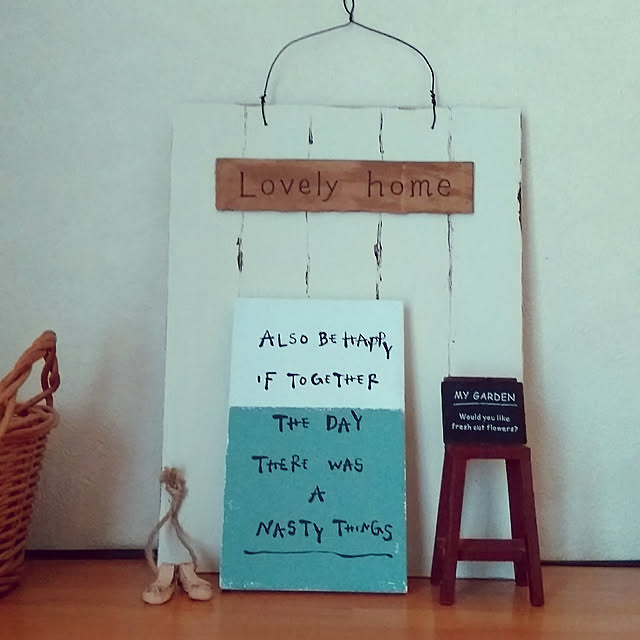 Lovely home
ALSO BE HAPPY
IF TOGETHER
THE DAY
THERE WAS
A
NASTY THINGS
MY GARDEN
Would you like
fresh cut flowers?